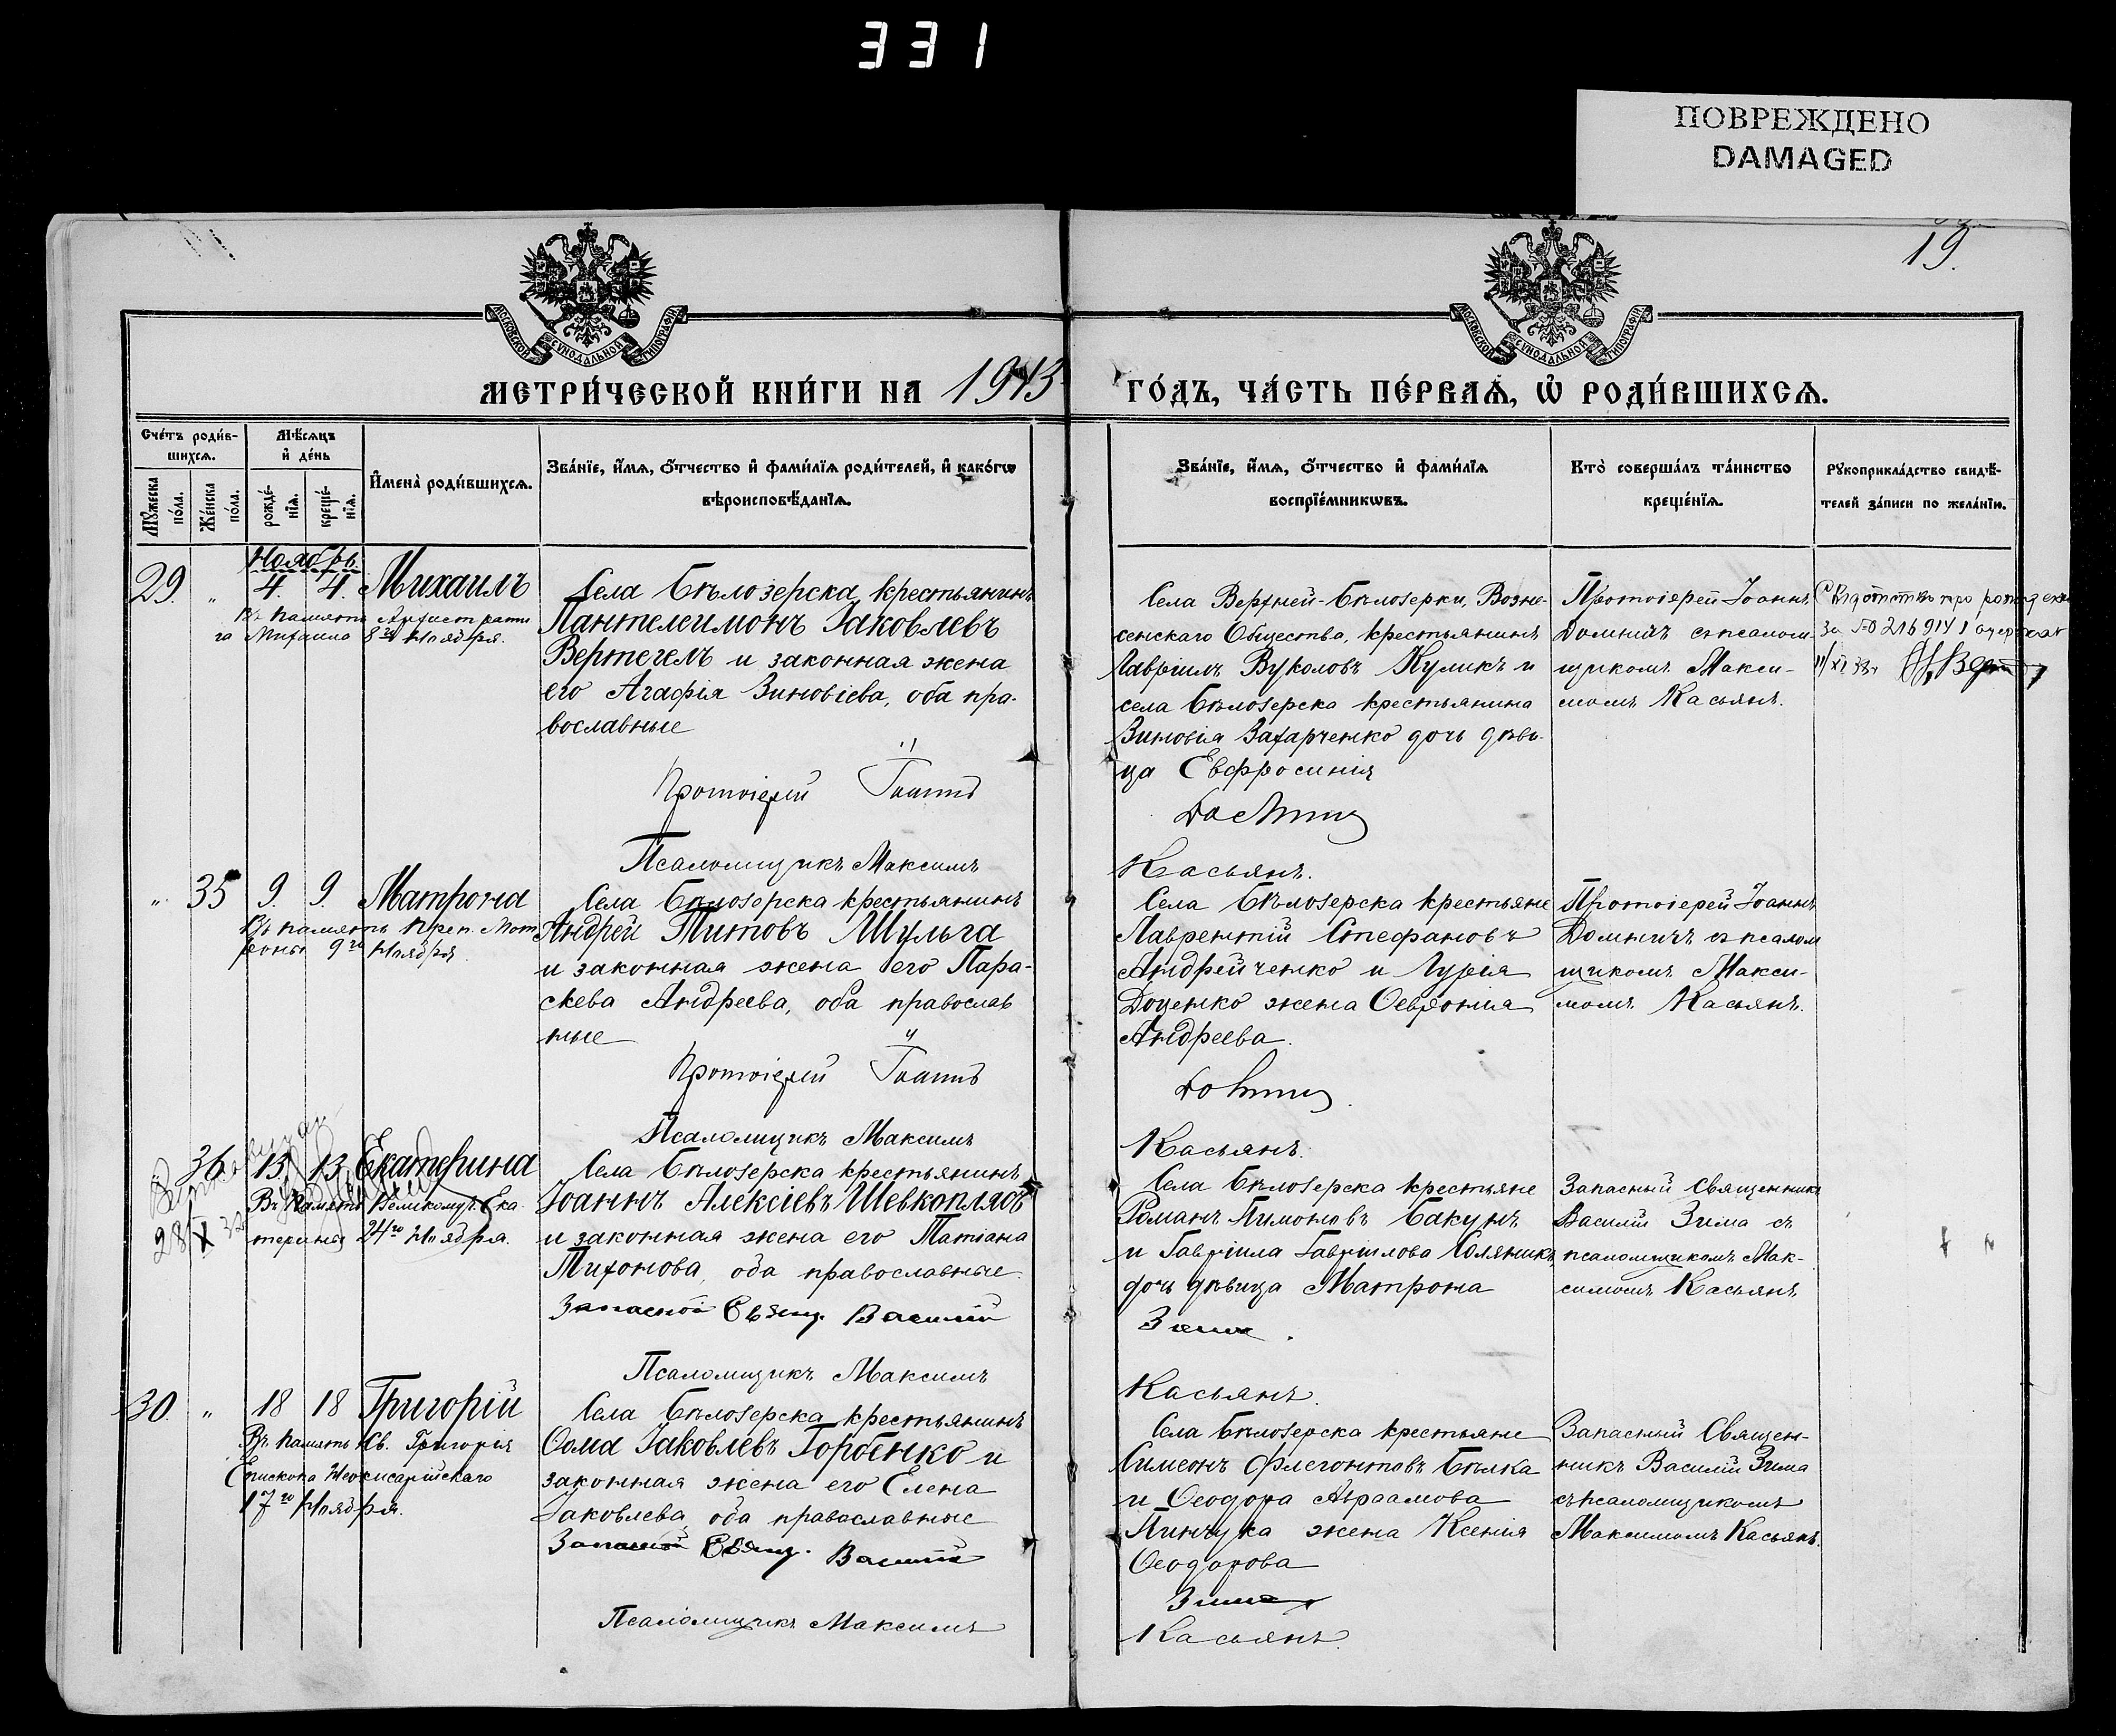 331
ПОВРЕЖДЕНО
DAMAGED
19.
МОСКОВСКОЙ СѴНОДАЛЬНОЙ ТИПОГРАФІИ
МОСКОВСКОЙ СѴНОДАЛЬНОЙ ТИПОГРАФІИ
МЕТРИ́ЧЕСКОЙ КНИ́ГИ НА 1913 ГО́ДЪ, ЧА́СТЬ ПЕ́РВАѦ, Ѡ҆ РОДИ́ВШИХСѦ.
Сче́тъ роди́в-
шихсѧ.
Мꙋ́жеска по́ла.
Же́нска по́ла.
Мѣ́сѧцъ
и҆ де́нь
рожде́-
нїѧ.
креще́-
нїѧ.
И҆мена̀ роди́вшихсѧ.
Зва́нїе, и҆́мѧ, ѻ҆́тчество и҆ фами́лїѧ роди́телей, и҆ како́гѡ
вѣроисповѣ́данїѧ.
Зва́нїе, и҆́мѧ, ѻ҆́тчество и҆ фами́лїѧ
воспрїе́мникѡвъ.
Кто̀ соверша́лъ та́инство
креще́нїѧ.
Рꙋкоприкла́дство свидѣ́-
телей за́писи по жела́нїю.
Ноябрь
29. „ 4. 4. Михаилъ
Въ память Архистрати
га Михаила 8го Ноября.
Села Бѣлозерска крестьянинъ
Пантелеимонъ Іаковлевъ
Вертегелъ и законная жена
его Агафія Зиновіева, оба пра-
вославные
Протоіерей Іоаннъ
Псаломщикъ Максимъ
Села Верхней-Бѣлозерки, Возне-
сенскаго Общества, крестьянинъ
Гавріилъ Вуколовъ Куликъ и
села Бѣлозерска крестьянина
Зиновія Захарченко дочь дѣви-
ца Евфросинія
Касьянъ.
Протоіерей Іоаннъ
Домничъ съ псалом-
щикомъ Макси-
момъ Касьянъ.
за № 216914
„ 35 9. 9. Матрона
Въ память Преп. Мат
роны 9го Ноября.
Села Бѣлозерска крестьянинъ
Андрей Титовъ Шульга
и законная жена его Пара-
скева Андреева, оба православ
ные
Протоіерей Іоаннъ
Псаломщикъ Максимъ
Села Бѣлозерска крестьяне
Лаврентій Стефановъ
Андрейченко и Гурія
Доценко жена Ѳевронія
Андреева.
Касьянъ.
Протоіерей Іоаннъ
Домничъ съ псалом
щикомъ Макси-
момъ Касьянъ.
36 13. 13 Екатерина
Въ память Великомуч. Ека
терины 24го Ноября.
28 X 32
Села Бѣлозерска крестьянинъ
Іоаннъ Алексіевъ Шевкоплясъ
и законная жена его Татіана
Тихонова, оба православные
Запасной Свящ. Василій
Псаломщикъ Максимъ
Села Бѣлозерска крестьяне
Романъ Лимоновъ Бакунъ
и Гавріила Гавріилова Соляникъ
дочь дѣвица Матрона
Зима.
Касьянъ.
Запасный Священникъ
Василій Зима съ
псаломщикомъ Мак-
симомъ Касьянъ
30. „ 18 18 Григорій
Въ память Св. Григорія
Епископа Неокисарійскаго
17го Ноября.
Села Бѣлозерска крестьянинъ
Ѳома Іаковлевъ Горбенко и
законная жена его Елена
Іаковлева, оба православные
Запасной Свящ. Василій
Псаломщикъ Максимъ
Села Бѣлозерска крестьяне
Симеонъ Флегонтовъ Бѣлка
и Ѳеодора Авраамова
Пинчука жена Ксенія
Ѳеодорова
Зима
Касьянъ.
Запасный Священ-
никъ Василій Зима
съ псаломщикомъ
Максимомъ Касьянъ.